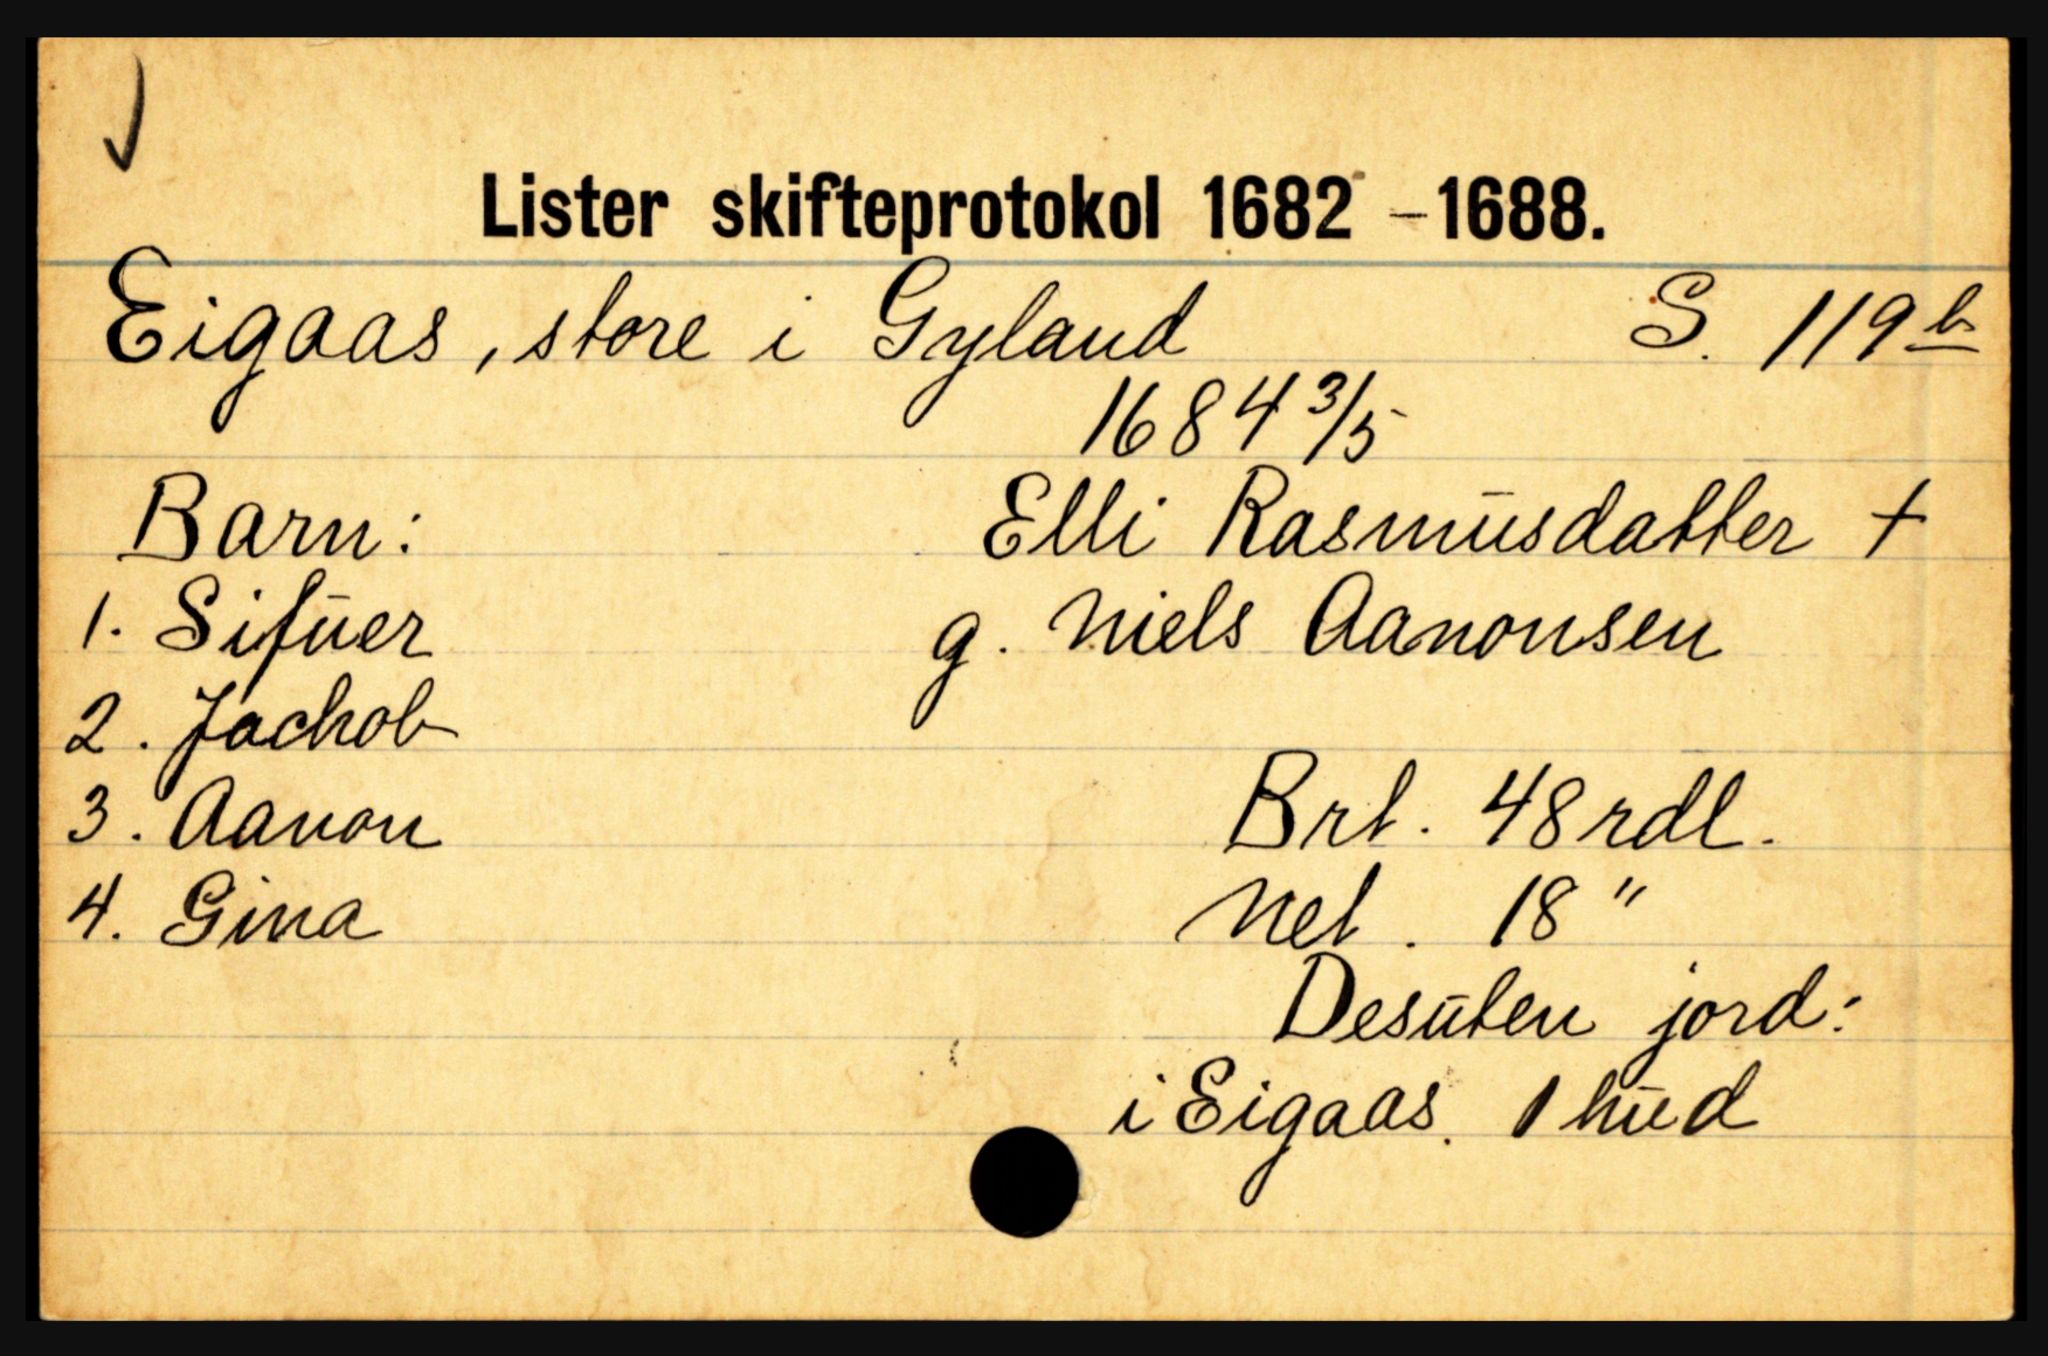 Lister skifteprotokol 1682 – 1688.
Eigaas, store i Gyland S. 119 b
1684 3/5
Barn: Elli Rasmusdatter †
1. Sifuer g. Niels Aanonsen
2. Jachob
3. Aanon Brt. 48 rdl.
4. Gina Net. 18 "
Desuten jord:
i Eigaas. 1 hud